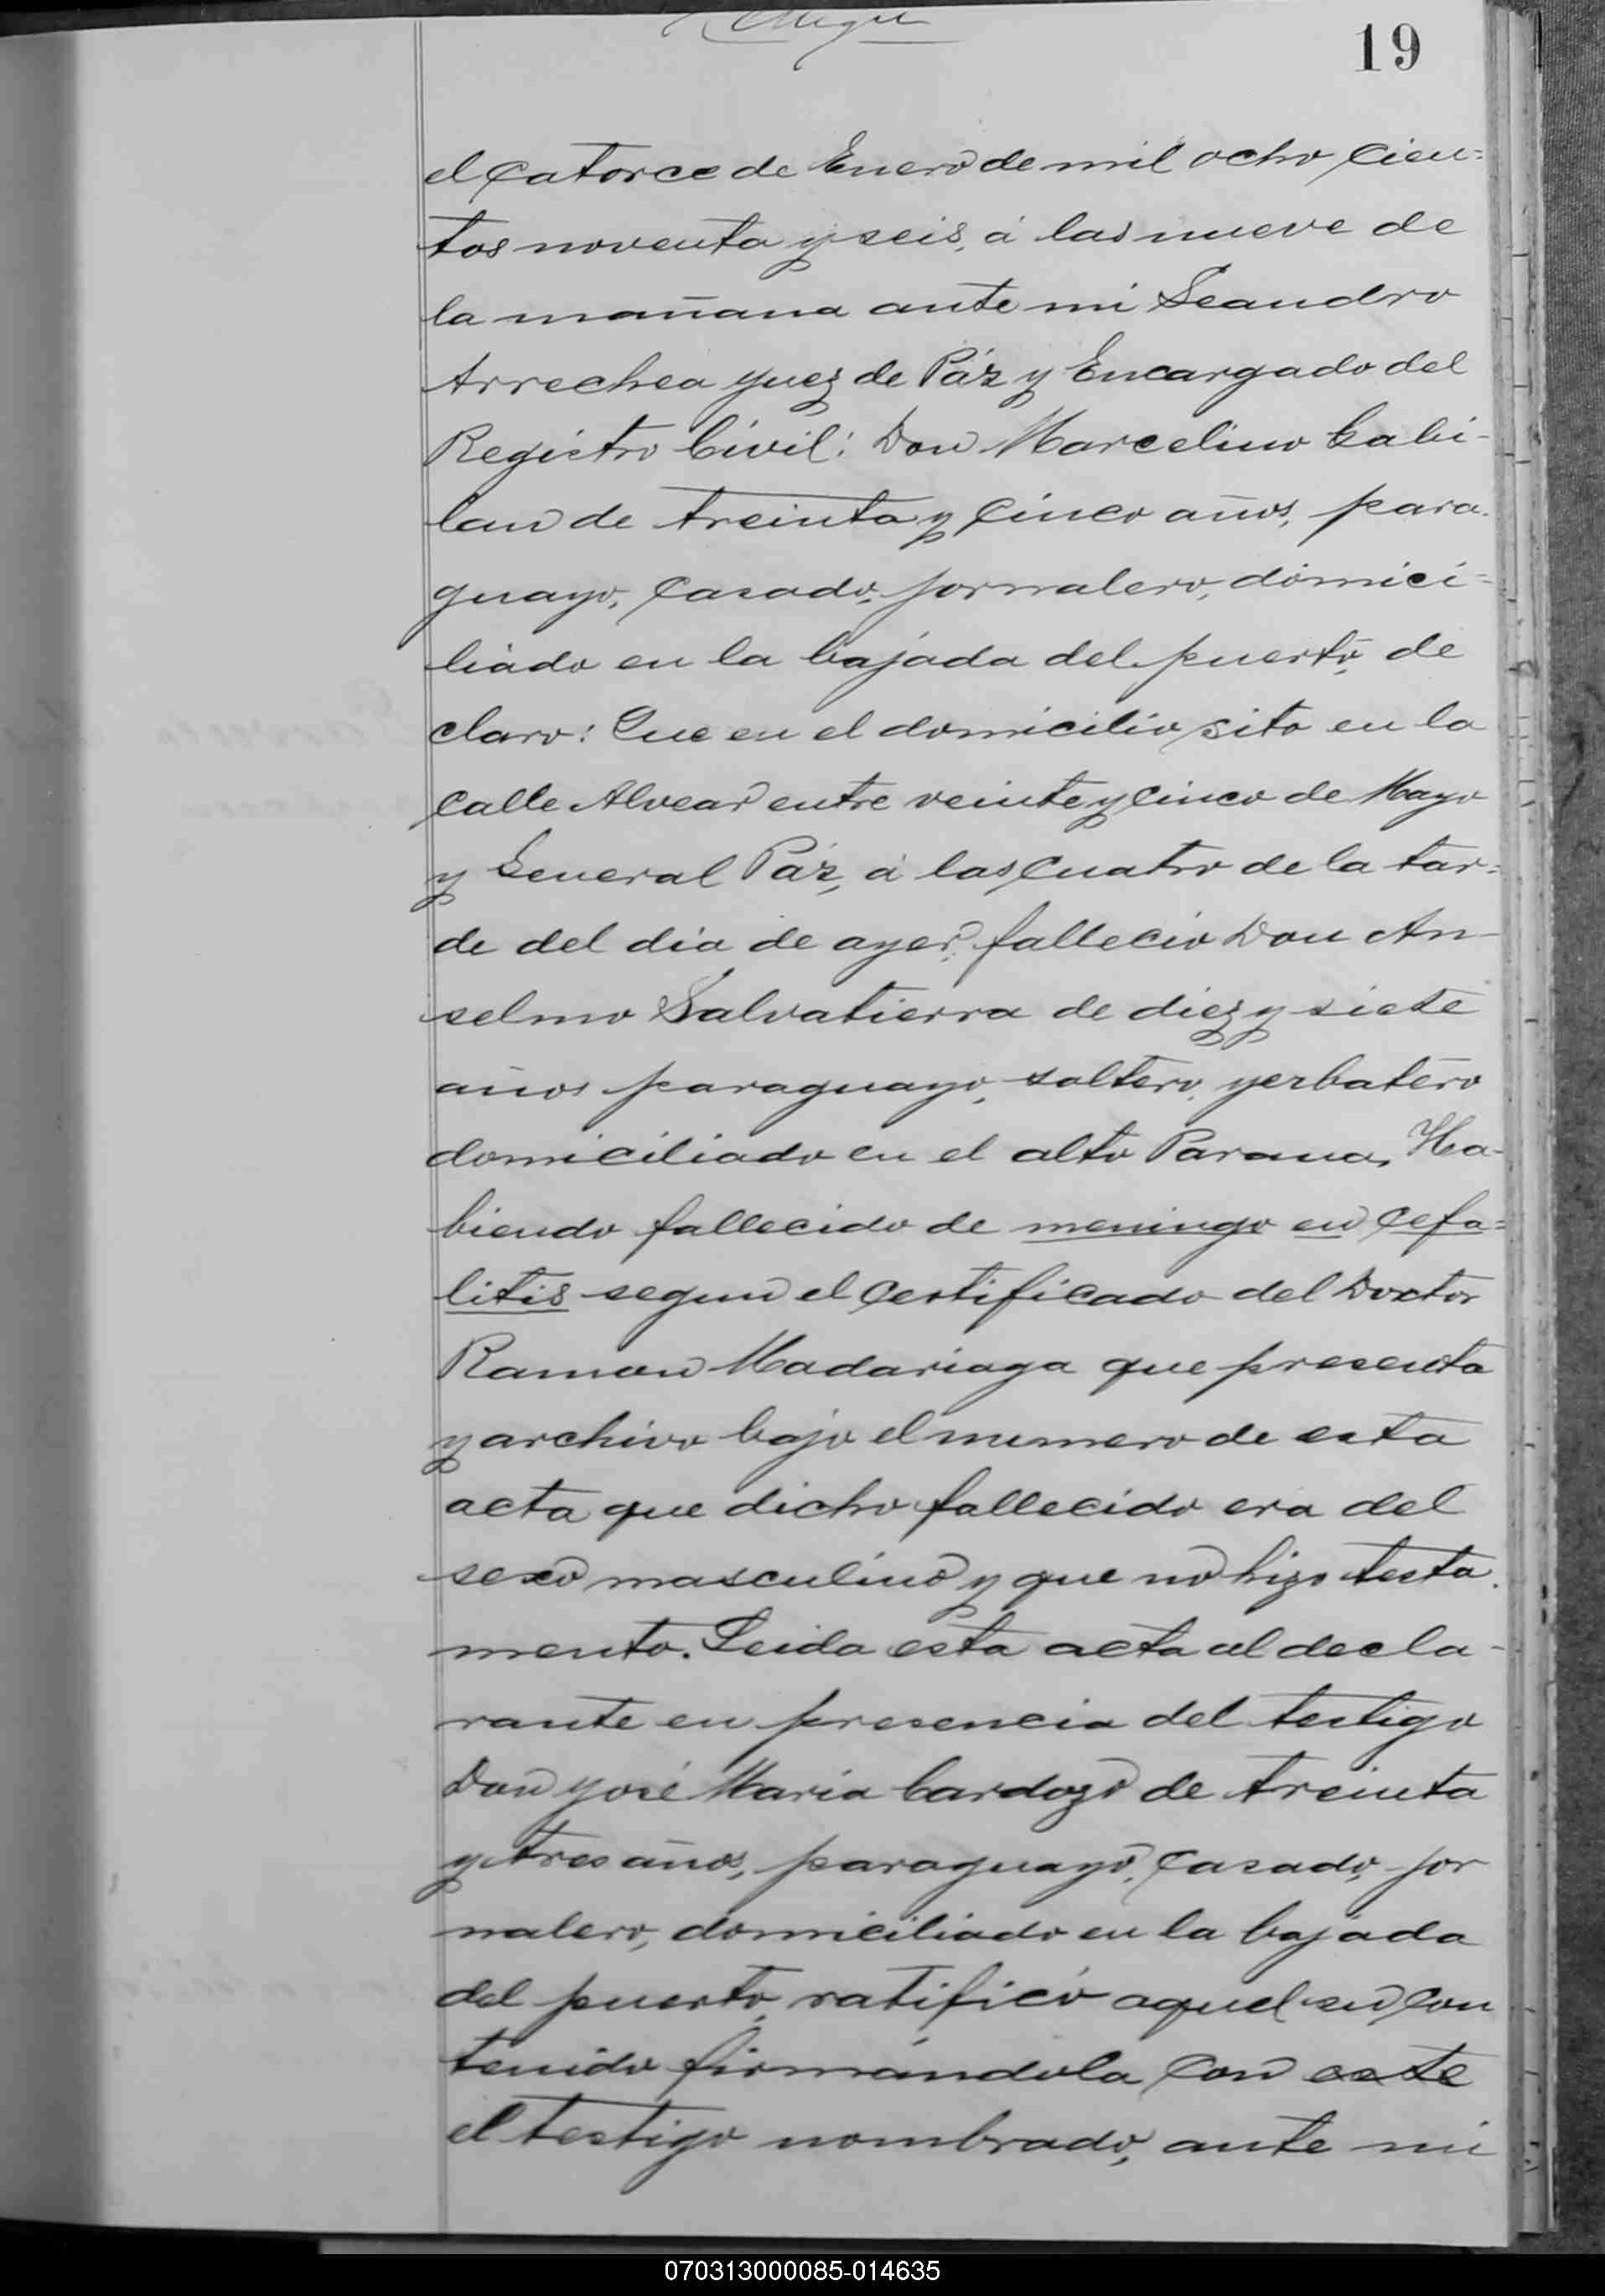 19
el catorce de Enero de mil ocho cien=
tos noventa y seis, á las nueve de
la mañana ante mi Leandro
Arrechea Juez de Páz y Encargado del
Registro Civil: Don Marcelino Gabi-
lan de treinta y cinco años, para-
guayo, casado, jornalero, domici=
liado en la bajada del puerto, de
claro: Que en el domicilio sito en la
calle Alvear entre veinte y cinco de Mayo
y General Páz, á las cuatro de la tar=
de del dia de ayer, falleció Don An-
selmo Salvatierra de diez y siete
años paraguayo, soltero, yerbatero
domiciliado en el alto Parana, Ha-
biendo fallecido de meningo en cefa=
litis segun el certificado del Doctor
Ramon Madariaga que presenta
y archivo bajo el numero de esta
acta que dicho fallecido era del
sexo masculino y que no hizo testa-
mento. Leida esta acta al decla-
rante en presencia del testigo
Don José Maria Cardozo de treinta
y tres años, paraguayo, casado, jor
nalero, domiciliado en la bajada
del puerto, ratificó aquel su con
tenido firmándola con este
el testigo nombrado, ante mi
070313000085-014635